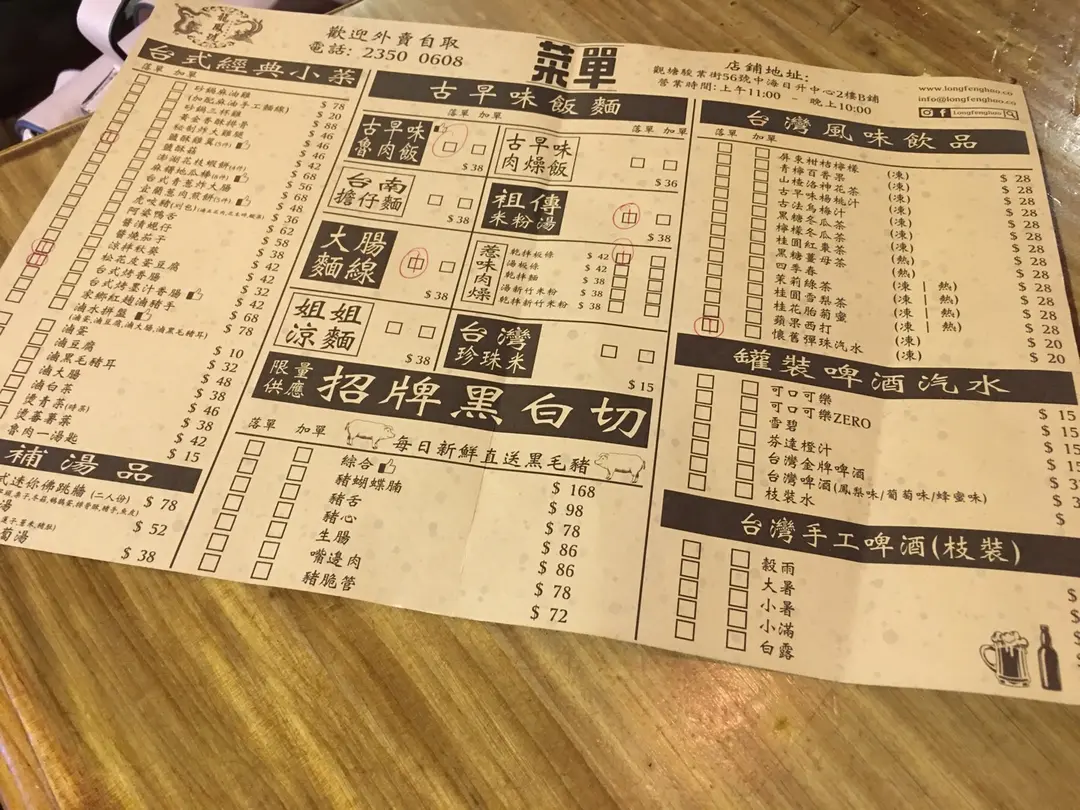 龍鳳號
歡迎外賣自取
電話: 2350 0608
菜單
店鋪地址:
觀塘駿業街56號中海日升中心2樓B鋪
營業時間:上午11:00 - 晚上10:00
www.longfenghao.co
info@longfenghao.co
Longfenghao
台式經典小菜
落單 加單
砂鍋麻油雞 $ 78
(加配麻油手工麵線) $ 20
砂鍋三杯雞 $ 88
黃金香酥排骨 $ 46
秘制炸大雞翅 $ 46
鹽酥雞翼(5件) $ 46
鹽酥菇 $ 42
澎湖花枝蝦餅(4件) $ 68
麻糬地瓜條(6件) $ 56
台式青蔥炸大腸 $ 68
宜蘭蔥肉煎餅(5件) $ 48
虎咬豬(刈包) $ 36
阿婆鴨舌 $ 62
醬漬蜆仔 $ 58
醬燒茄子 $ 38
涼拌秋葵 $ 42
松花皮蛋豆腐 $ 32
台式烤香腸 $ 42
台式烤墨汁香腸 $ 42
家鄉紅麴滷豬手 $ 68
滷水拼盤 $ 78
(滷蛋,滷豆腐,滷大腸,滷黑毛豬耳)
滷蛋 $ 10
滷豆腐 $ 32
滷黑毛豬耳 $ 48
滷大腸 $ 38
滷白菜 $ 46
燙青菜(時菜) $ 38
燙蕃薯葉 $ 42
魯肉一湯匙 $ 15
補湯品
式迷你佛跳牆(二人份) $ 78
湯 $ 52
蔔湯 $ 38
古早味飯麵
落單 加單
古早味魯肉飯 $ 38
古早味肉燥飯 $ 36
台南擔仔麵 $ 38
祖傳米粉湯 $ 38
大腸麵線 $ 38
惹味肉燥
乾拌板條 $ 42
湯板條 $ 42
乾拌麵 $ 38
湯新竹米粉 $ 38
乾拌新竹米粉 $ 38
姐姐涼麵 $ 38
台灣珍珠米 $ 15
限量供應 招牌黑白切
落單 加單
每日新鮮直送黑毛豬
綜合 $ 168
豬蝴蝶腩 $ 98
豬舌 $ 78
豬心 $ 86
生腸 $ 86
嘴邊肉 $ 78
豬脆管 $ 72
台灣風味飲品
落單 加單
屏東柑桔檸檬 (凍) $ 28
青檸百香果 (凍) $ 28
山楂洛神花茶 (凍) $ 28
古早味楊桃汁 (凍) $ 28
古法烏梅汁 (凍) $ 28
黑糖冬瓜茶 (凍) $ 28
檸檬冬瓜茶 (凍) $ 28
桂圓紅棗茶 (熱) $ 28
黑糖薑母茶 (熱) $ 28
四季春 (凍 | 熱) $ 28
茉莉綠茶 (凍 | 熱) $ 28
桂圓雪梨茶 (凍 | 熱) $ 28
桂花胎菊蜜 (凍 | 熱) $ 28
蘋果西打 (凍) $ 20
懷舊彈珠汽水 (凍) $ 20
罐裝啤酒汽水
可口可樂 $ 15
可口可樂ZERO $ 15
雪碧 $ 15
芬達橙汁 $ 15
台灣金牌啤酒
台灣啤酒(鳳梨味/葡萄味/蜂蜜味)
枝裝水 $
台灣手工啤酒(枝裝)
穀雨 $
大暑 $
小暑 $
小滿 $
白露 $